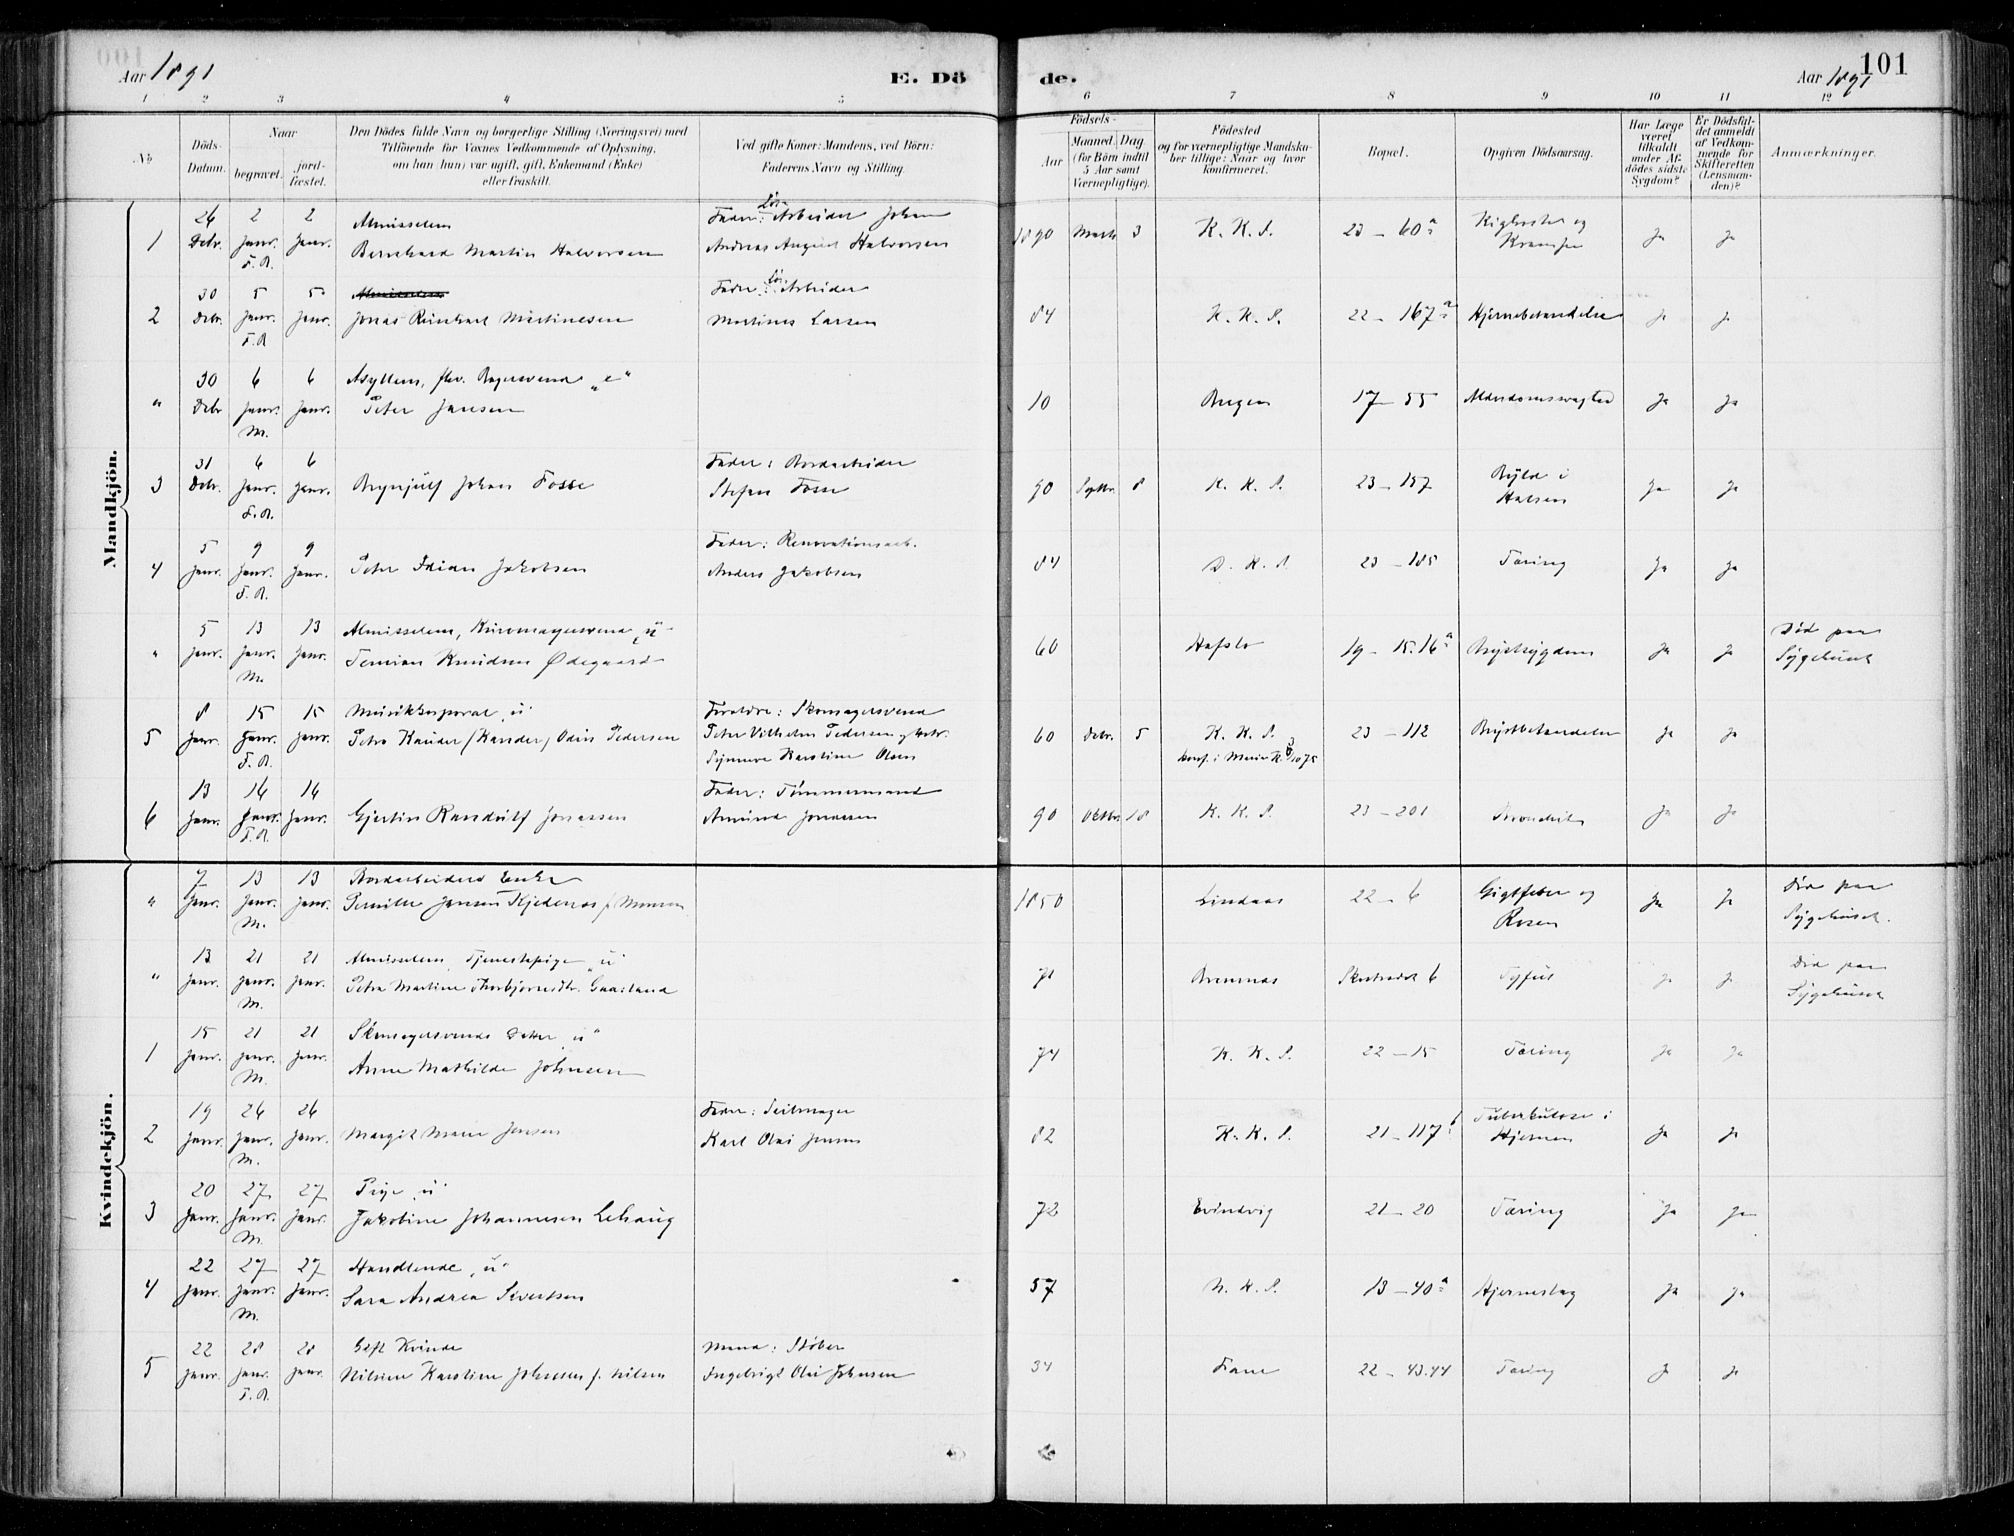 Aar 1891
E. Dö
de.
Aar 1891
101
1 2 3 4 5 6 7 8 9 10 11 12
No
Döds-Datum.
Naar
begravet.
jord-fæstet.
Den Dödes fulde Navn og borgerlige Stilling (Næringsvei) med
Tilföiende for Voxnes Vedkommende af Oplysning,
om han (hun) var ugift, gift, Enkemand (Enke)
eller fraskilt.
Ved gifte Koner: Mandens, ved Börn:
Faderens Navn og Stilling.
Födsels-
Aar
Maaned. Dag.
(for Börn indtil
5 Aar samt
Værnepligtige).
Födested
og for værnepligtige Mandska-
ber tillige: Naar og hvor
konfirmeret.
Bopæl.
Opgiven Dödsaarsag.
Har Læge
været
tilkaldt
under Af-
dødes sidste
Sygdom?
Er Dödsfal-
det anmeldt
af Vedkom-
mende for
Skifteretten
(Lensman-
den)?
Anmærkninger.
Mandkjön.
1 26 Debr. 2 Janr. F.A. 2 Janr. Almisselem Bernhard Martin Halvorsen Fader: Løs-Arbeider Johan Andreas August Halvorsen 1890 Marts 3 K. K. S. 23 - 60a Kighoste og Krampe Ja Ja
2 30 Debr. 5 Janr. F.A. 5 Janr. Jonas Reinhart Martinesen Fader: Løs-Arbeider Martines Larsen 84 K. K. S. 22 - 167a Hjernebetændelse Ja Ja
" 30 Debr 6 Janr. M. 6 Janr. Asyllem, fhv. Bagersvend "e" Peter Jansen 10 Bergen 17 - 55 Alderdomssvaghed Ja Ja
3 31 Debr. 6 Janr. F.A. 6 Janr. Brynjulf Johan Fosse Fader: Bordarbeider Stefan Fosse 90 Septbr. 8 K. K. S. 23 - 157 Byld i Halsen Ja Ja
4 5 Janr. 9 Janr. F.A. 9 Janr. Peter Jakobsen Fader: Renovationsarb. Anders Jakobsen 84 D. K. S. 23 - 185 Tæring Ja Ja
" 5 Janr. 13 Janr. M. 13 Janr. Almisselem, "u" Knudsen Ødegaard 60 Hafslo 19 - 15.16a Brystsygdom Ja Ja Død paa Sygehuset
5 8 Janr. 15 Janr. F.A. 15 Janr. Musikkorporal "u" Petro Kander (Kander) Odin Pedersen Forældre: Skomagersvend Peter Vilhelm Pedersen og Hstr. Synneve Karoline Olsen 60 Debr. 5 K. K. S. konf. i Marie K. 75 23 - 112 Brystbetændelse Ja Ja
6 13 Janr. 16 Janr. F.A. 16 Janr. Gjertin Randulf Jonassen Fader: Tømmermand Amund Jonassen 90 Oktbr. 18 K. K. S. 23 - 201 Bronchit Ja Ja
Kvindekjön.
" 7 Janr. 13 Janr. M. 13 Janr. Bordarbeiders Enke Pernille Jansen Kjedenæs f. Monsen 1850 Lindaas 22 - 6 Gigtfeber og Rosen Ja Ja Død paa Sygehuset.
" 13 Janr. 21 Janr. M. 21 Janr. Almisselem, Tjenestepige "u" Petra Martine Thorbjørnsdtr. Gaasland 71 Bremnæs 6 Tyfus Ja Ja Død paa Sygehuset
1 15 Janr. 21 Janr. M. 21 Janr. Skomagersvends Datter "u" Anne Mathilde Johnsen 74 K. K. S. 22 - 15 Tæring Ja Ja
2 19 Janr. 26 Janr. M. 26 Janr. Margit Marie Jensen Fader: Seilmager Karl Olai Jensen 82 K. K. S. 21 - 117b Tuberkulose i Hjernen Ja Ja
3 20 Janr. 27 Janr. M. 27 Janr. Pige "u" Jakobine Johannesen Lehaug 72 Evindvig 21 - 20 Tæring Ja Ja
4 22 Janr. 27 Janr. M. 27 Janr. Handlende "u" Sara Andrea Sivertsen 57 N. K. S. 13 - 40a Hjerneslag Ja Ja
5 22 Janr. 28 Janr. F.A. 28 Janr. Gift Kvinde Nilsine Karoline Johnsen f. Nilsen Mand: Støber Ingebrigt Olai Johnsen 34 Fane 22 - 43.44 Tæring Ja Ja